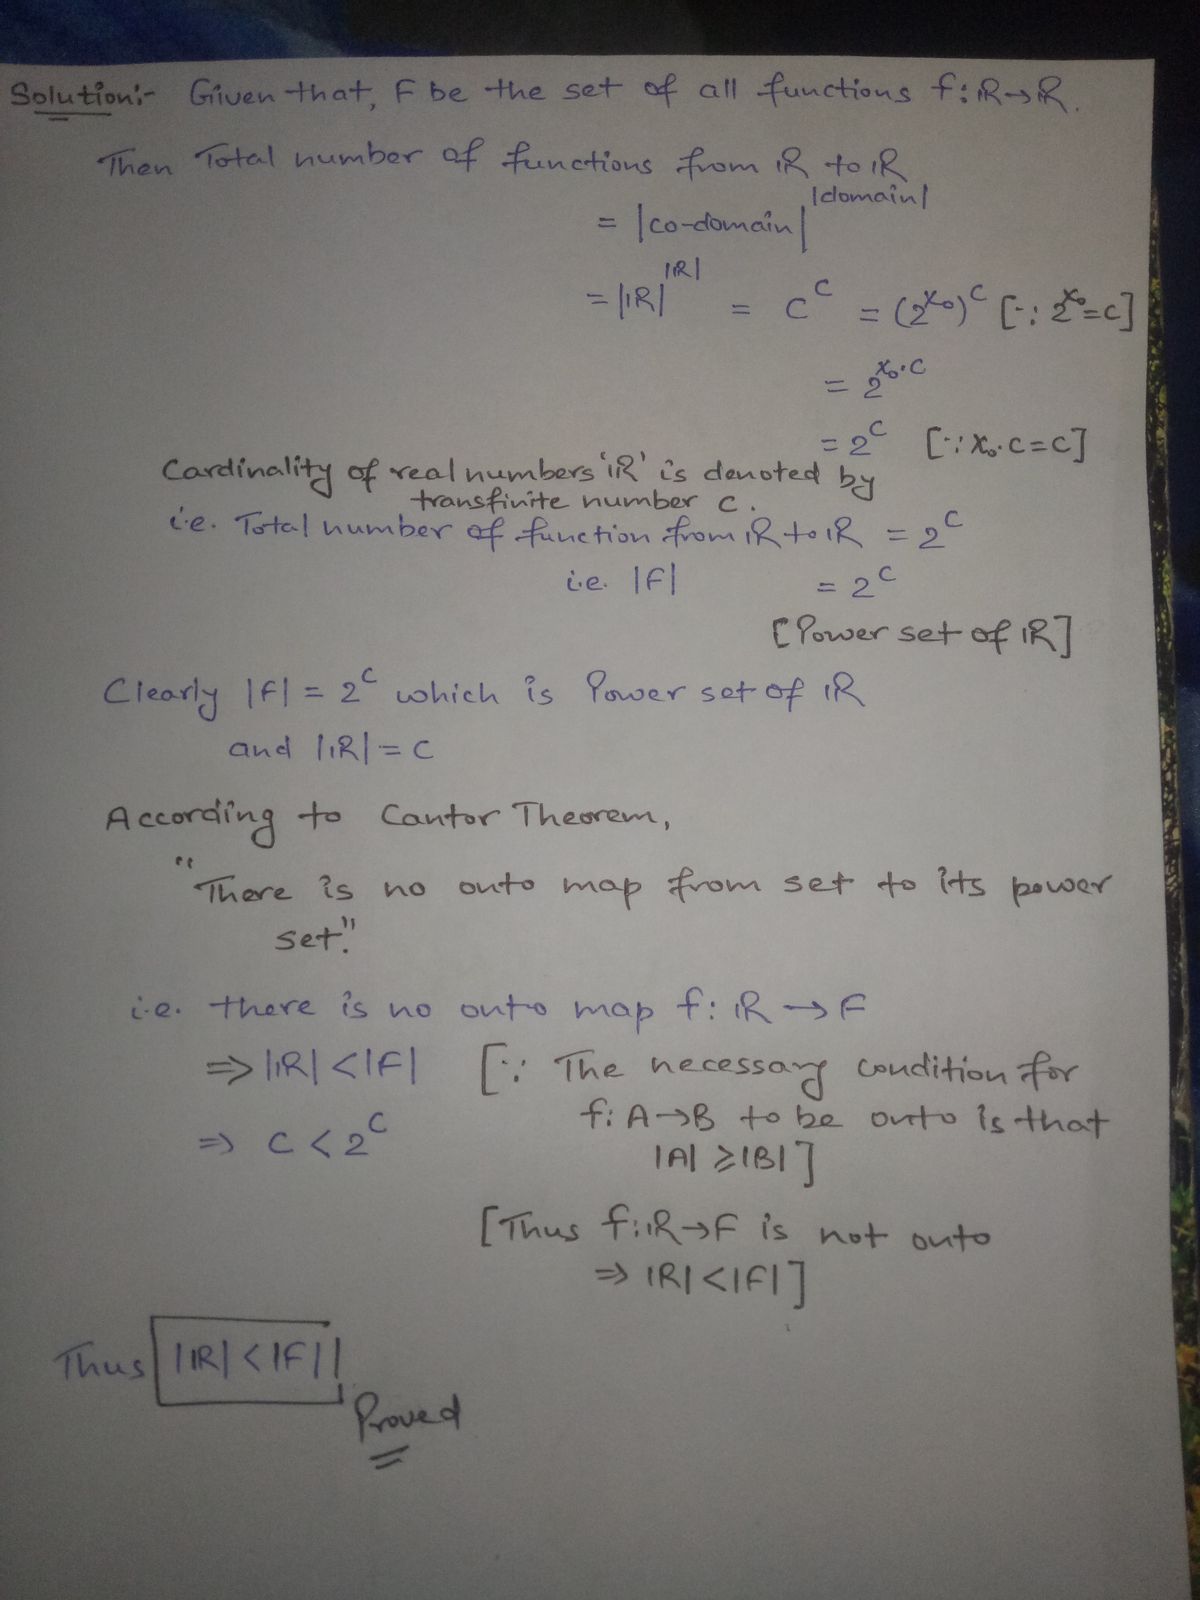 Solution:- Given that, F be the set of all functions f: ℝ→ℝ.
Then Total number of functions from ℝ to ℝ
= |co-domain|^|domain|
= |ℝ|^|ℝ| = C^C = (2^χ₀)^C [∵ 2^χ₀=c]
= 2^χ₀·C
= 2^C [∵ χ₀·C=C]
Cardinality of real numbers 'ℝ' is denoted by
transfinite number C.
i.e. Total number of function from ℝ to ℝ = 2^C
i.e. |F| = 2^C
[Power set of ℝ]
Clearly |F| = 2^C which is Power set of ℝ
and |ℝ| = C
According to Cantor Theorem,
"There is no onto map from set to its power
set."
i.e. there is no onto map f: ℝ → F
⇒ |ℝ| < |F| [∵ The necessary condition for
f: A→B to be onto is that
⇒ C < 2^C |A| ⩾ |B| ]
[Thus f: ℝ→F is not onto
⇒ |R| < |F| ]
Thus |ℝ| < |F|
Proved